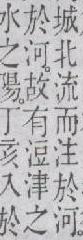 城北流而注於河
於河。故有浢津之
水之陽。丁亥入於